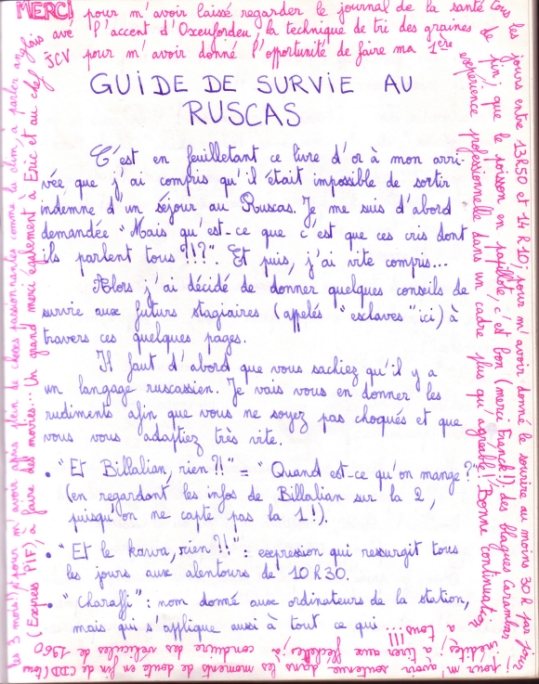 MERCI pour m'avoir laissé regarder le journal de la santé tous les jours entre 13h50 et 14h10; pour m'avoir donné le sourire au moins 30 h par jour
l'accent d'Oxeufordeu, la technique de tri des graines de
JCV pour m'avoir donné l'opportunité de faire ma 1ère expérience professionnelle dans un cadre plus qu'agréable! Bonne continuation
à tous!!!
que le poisson en papillote, c'est bon (merci Franck!), des blagues Carambar
GUIDE DE SURVIE AU
RUSCAS
C'est en feuilletant ce livre d'or à mon arri-
vée que j'ai compris qu'il était impossible de sortir
indemne d'un séjour au Ruscas. Je me suis d'abord
demandée "Mais qu'est-ce que c'est que ces cris dont
ils parlent tous ?!!?". Et puis, j'ai vite compris...
Alors j'ai décidé de donner quelques conseils de
survie aux futurs stagiaires (appelés "esclaves" ici) à
travers ces quelques pages.
Il faut d'abord que vous sachiez qu'il y a
un langage ruscassien. Je vais vous en donner les
rudiments afin que vous ne soyez pas choqués et que
vous vous adaptiez très vite.
• "Et Billalian, rien ?!" = "Quand est-ce qu'on mange ?"
(en regardant les infos de Billalian sur la 2,
puisqu'on ne capte pas la 1!).
• "Et le kawa, rien ?!" : expression qui ressurgit tous
les jours aux alentours de 10h30.
• "Charaffi" : nom donné aux ordinateurs de la station,
mais qui s'applique aussi à tout ce qui
pour m'avoir soutenue dans les moments de doute en fin de CDD
à tirer aux fléchettes, à conduire des véhicules de 1960
les 3 mois!); pour m'avoir appris plein de choses passionnantes comme la clim, à parler anglais avec
(Express PIF), à faire des moires... Un grand merci également à Eric et au chef